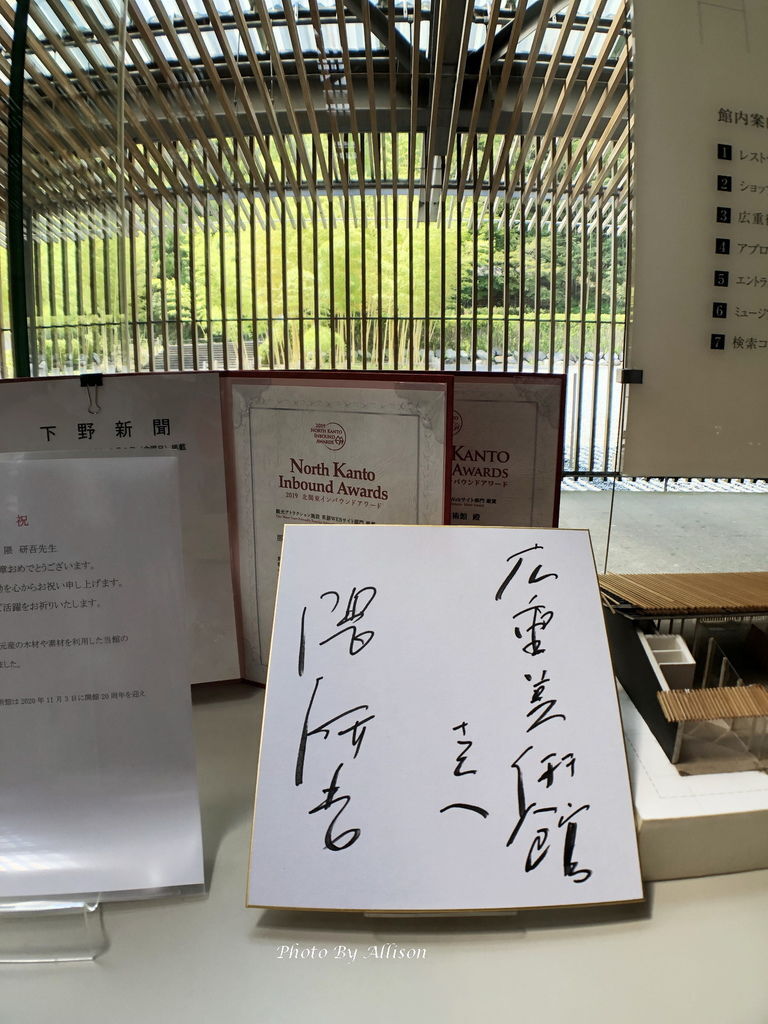 館内案
1 レスト
2 ショッ
3 広重
4 アプロ
5 エントラ
6 ミュージ
7 検索コ
下野新聞
祝
隈 研吾先生
章おめでとうございます。
を心からお祝い申し上げます。
ご活躍をお祈りいたします。
元産の木材や素材を利用した当館の
ました。
術館は 2020 年 11 月 3 日に開館 20 周年を迎え
2019
NORTH KANTO
INBOUND
AWARDS
North Kanto
Inbound Awards
2019 北関東インバウンドアワード
観光アトラクション施設 英語WEBサイト部門 最賞
KANTO
AWARDS
バウンドアワード
Webサイト部門 最賞
術館 殿
広重美術館
さんへ
隈研吾
Photo By Allison